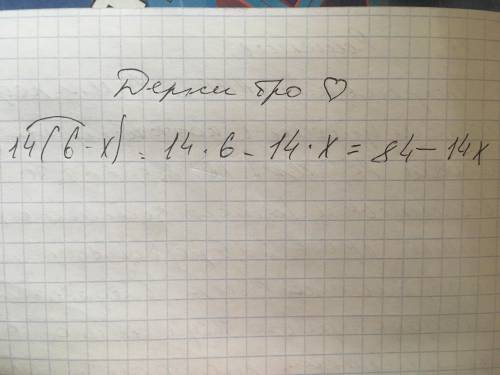 Держи бро ♡
14(6-x) = 14·6-14·x = 84-14x